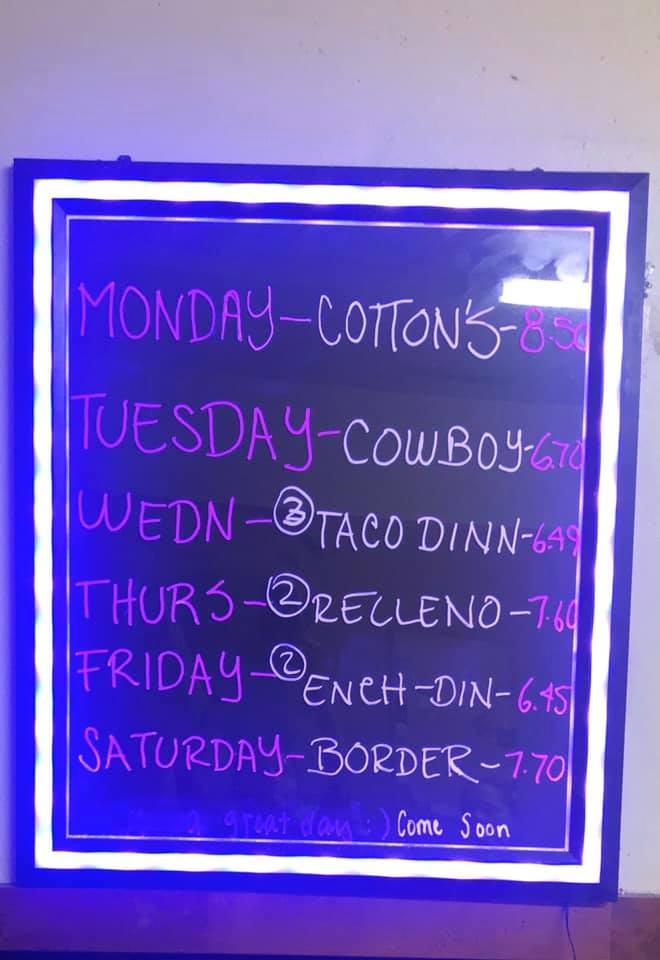 MONDAY-COTTON'S-8.50
TUESDAY-COWBOY-6.70
WEDN-③TACO DINN-6.49
THURS-②RELLENO-7.60
FRIDAY-②ENCH-DIN-6.45
SATURDAY-BORDER-7.70
a great day :) Come Soon